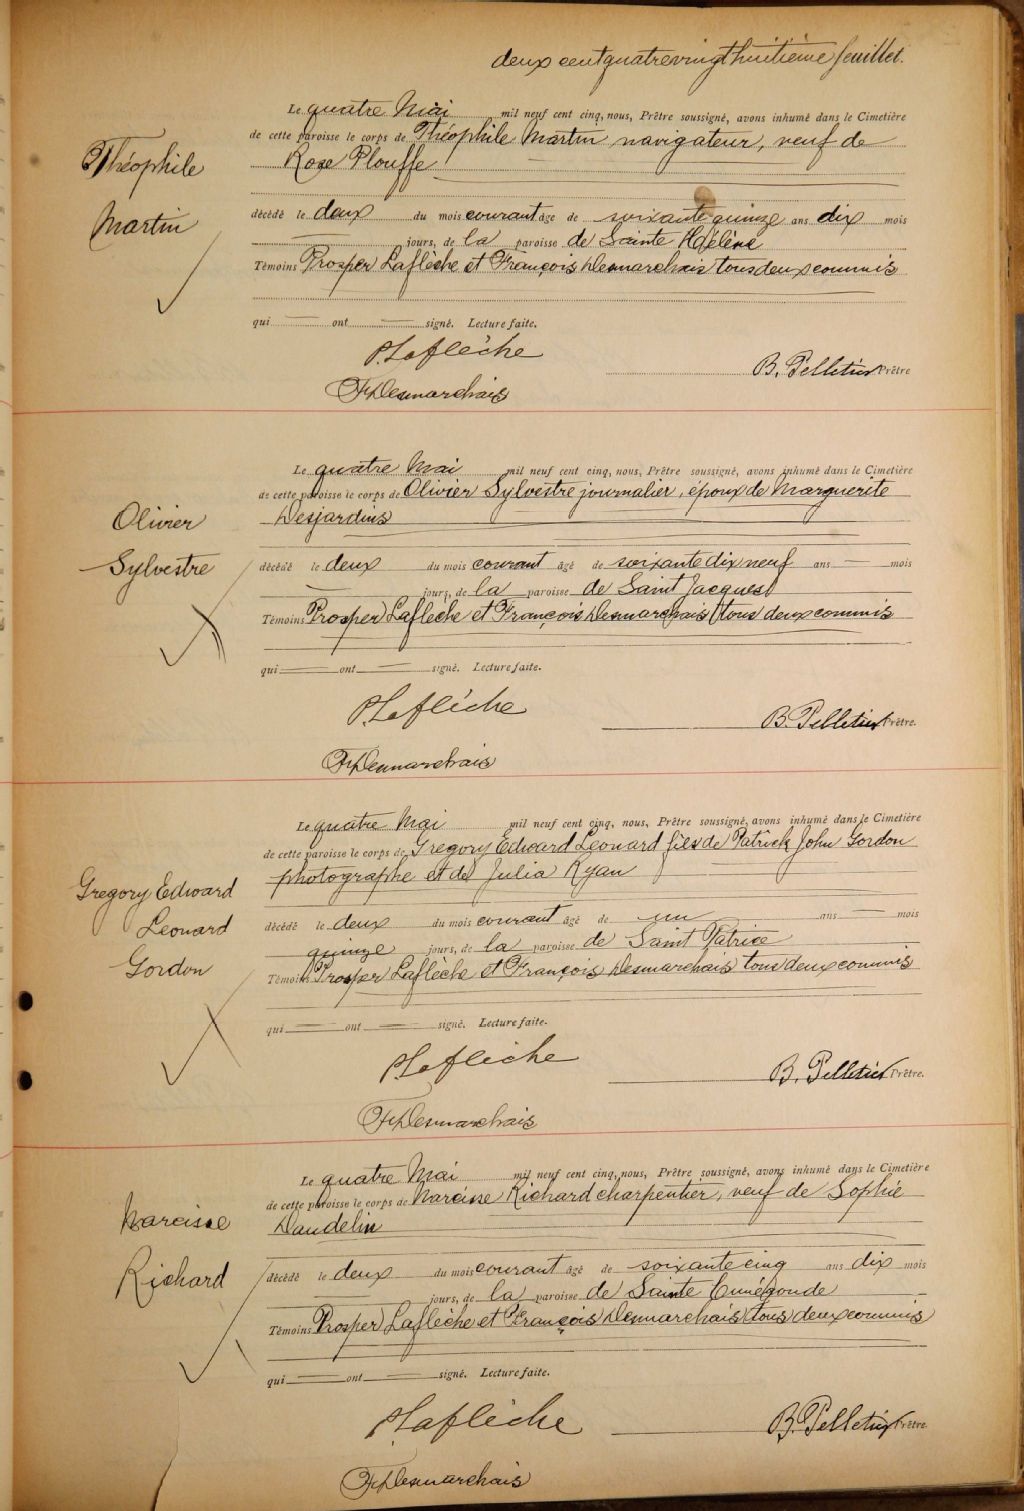 deux cent quatre vingt huitième feuillet.
Le quatre Mai mil neuf cent cinq, nous, Prêtre soussigné, avons inhumé dans le Cimetière
de cette paroisse le corps de Théophile Martin navigateur, veuf de
Rose Plouffe
Théophile
Martin
décédé le deux du mois courant âgé de soixante quinze ans dix mois
jours, de la paroisse de Sainte Hélène
Témoins Prosper Laflèche et François Desmarchais tous deux commis
qui ont signé. Lecture faite.
P. Laflèche
B. Pelletier Prêtre
F. Desmarchais
Le quatre Mai mil neuf cent cinq, nous, Prêtre soussigné, avons inhumé dans le Cimetière
de cette paroisse le corps de Olivier Sylvestre journalier, époux de Marguerite
Desjardins
Olivier
Sylvestre
décédé le deux du mois courant âgé de soixante dix neuf ans mois
jours, de la paroisse de Saint Jacques
Témoins Prosper Laflèche et François Desmarchais tous deux commis
qui ont signé. Lecture faite.
P. Laflèche
B. Pelletier Prêtre.
F. Desmarchais
Le quatre Mai mil neuf cent cinq, nous, Prêtre soussigné, avons inhumé dans le Cimetière
de cette paroisse le corps de Gregory Edward Leonard fils de Patrick John Gordon
photographe et de Julia Ryan
Gregory Edward
Leonard
Gordon
décédé le deux du mois courant âgé de un ans mois
quinze jours, de la paroisse de Saint Patrice
Témoins Prosper Laflèche et François Desmarchais tous deux commis
qui ont signé. Lecture faite.
P. Laflèche
B. Pelletier Prêtre.
F. Desmarchais
Le quatre Mai mil neuf cent cinq, nous, Prêtre soussigné, avons inhumé dans le Cimetière
de cette paroisse le corps de Narcisse Richard charpentier, veuf de Sophie
Daudelin
Narcisse
Richard
décédé le deux du mois courant âgé de soixante cinq ans dix mois
jours, de la paroisse de Sainte Cunégonde
Témoins Prosper Laflèche et François Desmarchais tous deux commis
qui ont signé. Lecture faite.
P. Laflèche
B. Pelletier Prêtre.
F. Desmarchais